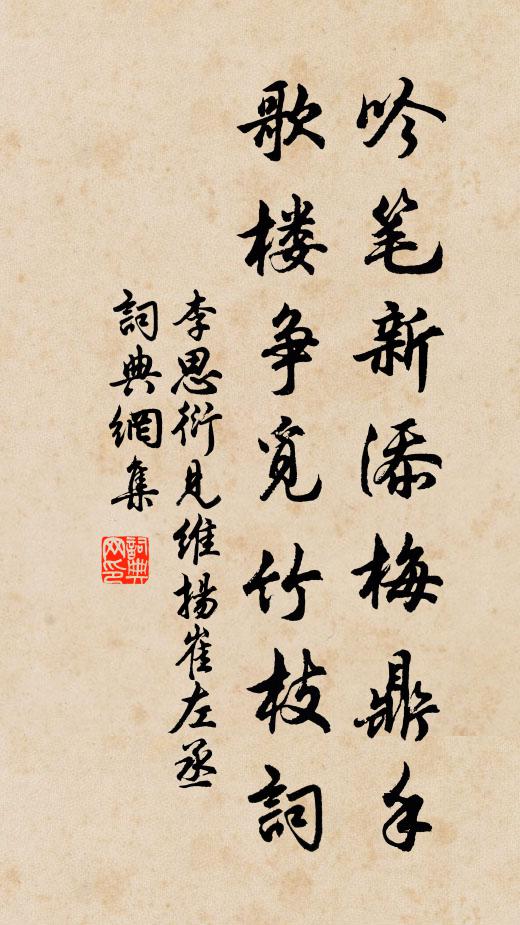 吟笔新添梅鼎手
歌楼争觅竹枝詞
李思衍见維揚崔左丞
詞典網集
詞典
网印